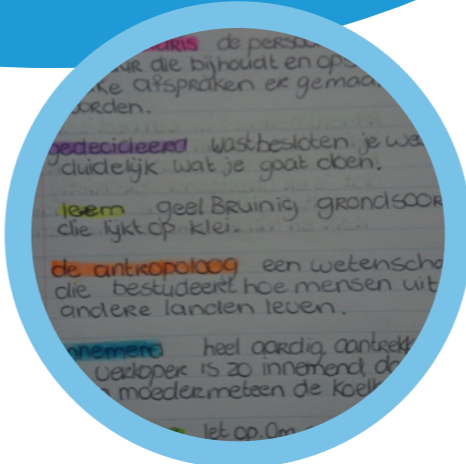 de pers
die bijhoudt en op
afspraken er gemaa
orden.
gedecideerd vastbesloten, je we
duidelijk wat je gaat doen.
leem geel Bruinig grondsoor
die lijkt op klei.
de antropoloog een wetenscha
die bestudeert hoe mensen uit
andere landen leven.
nnemend heel aardig, aantrekk
verkoper is zo innemend, da
moeder meteen de koelk
let op. Om